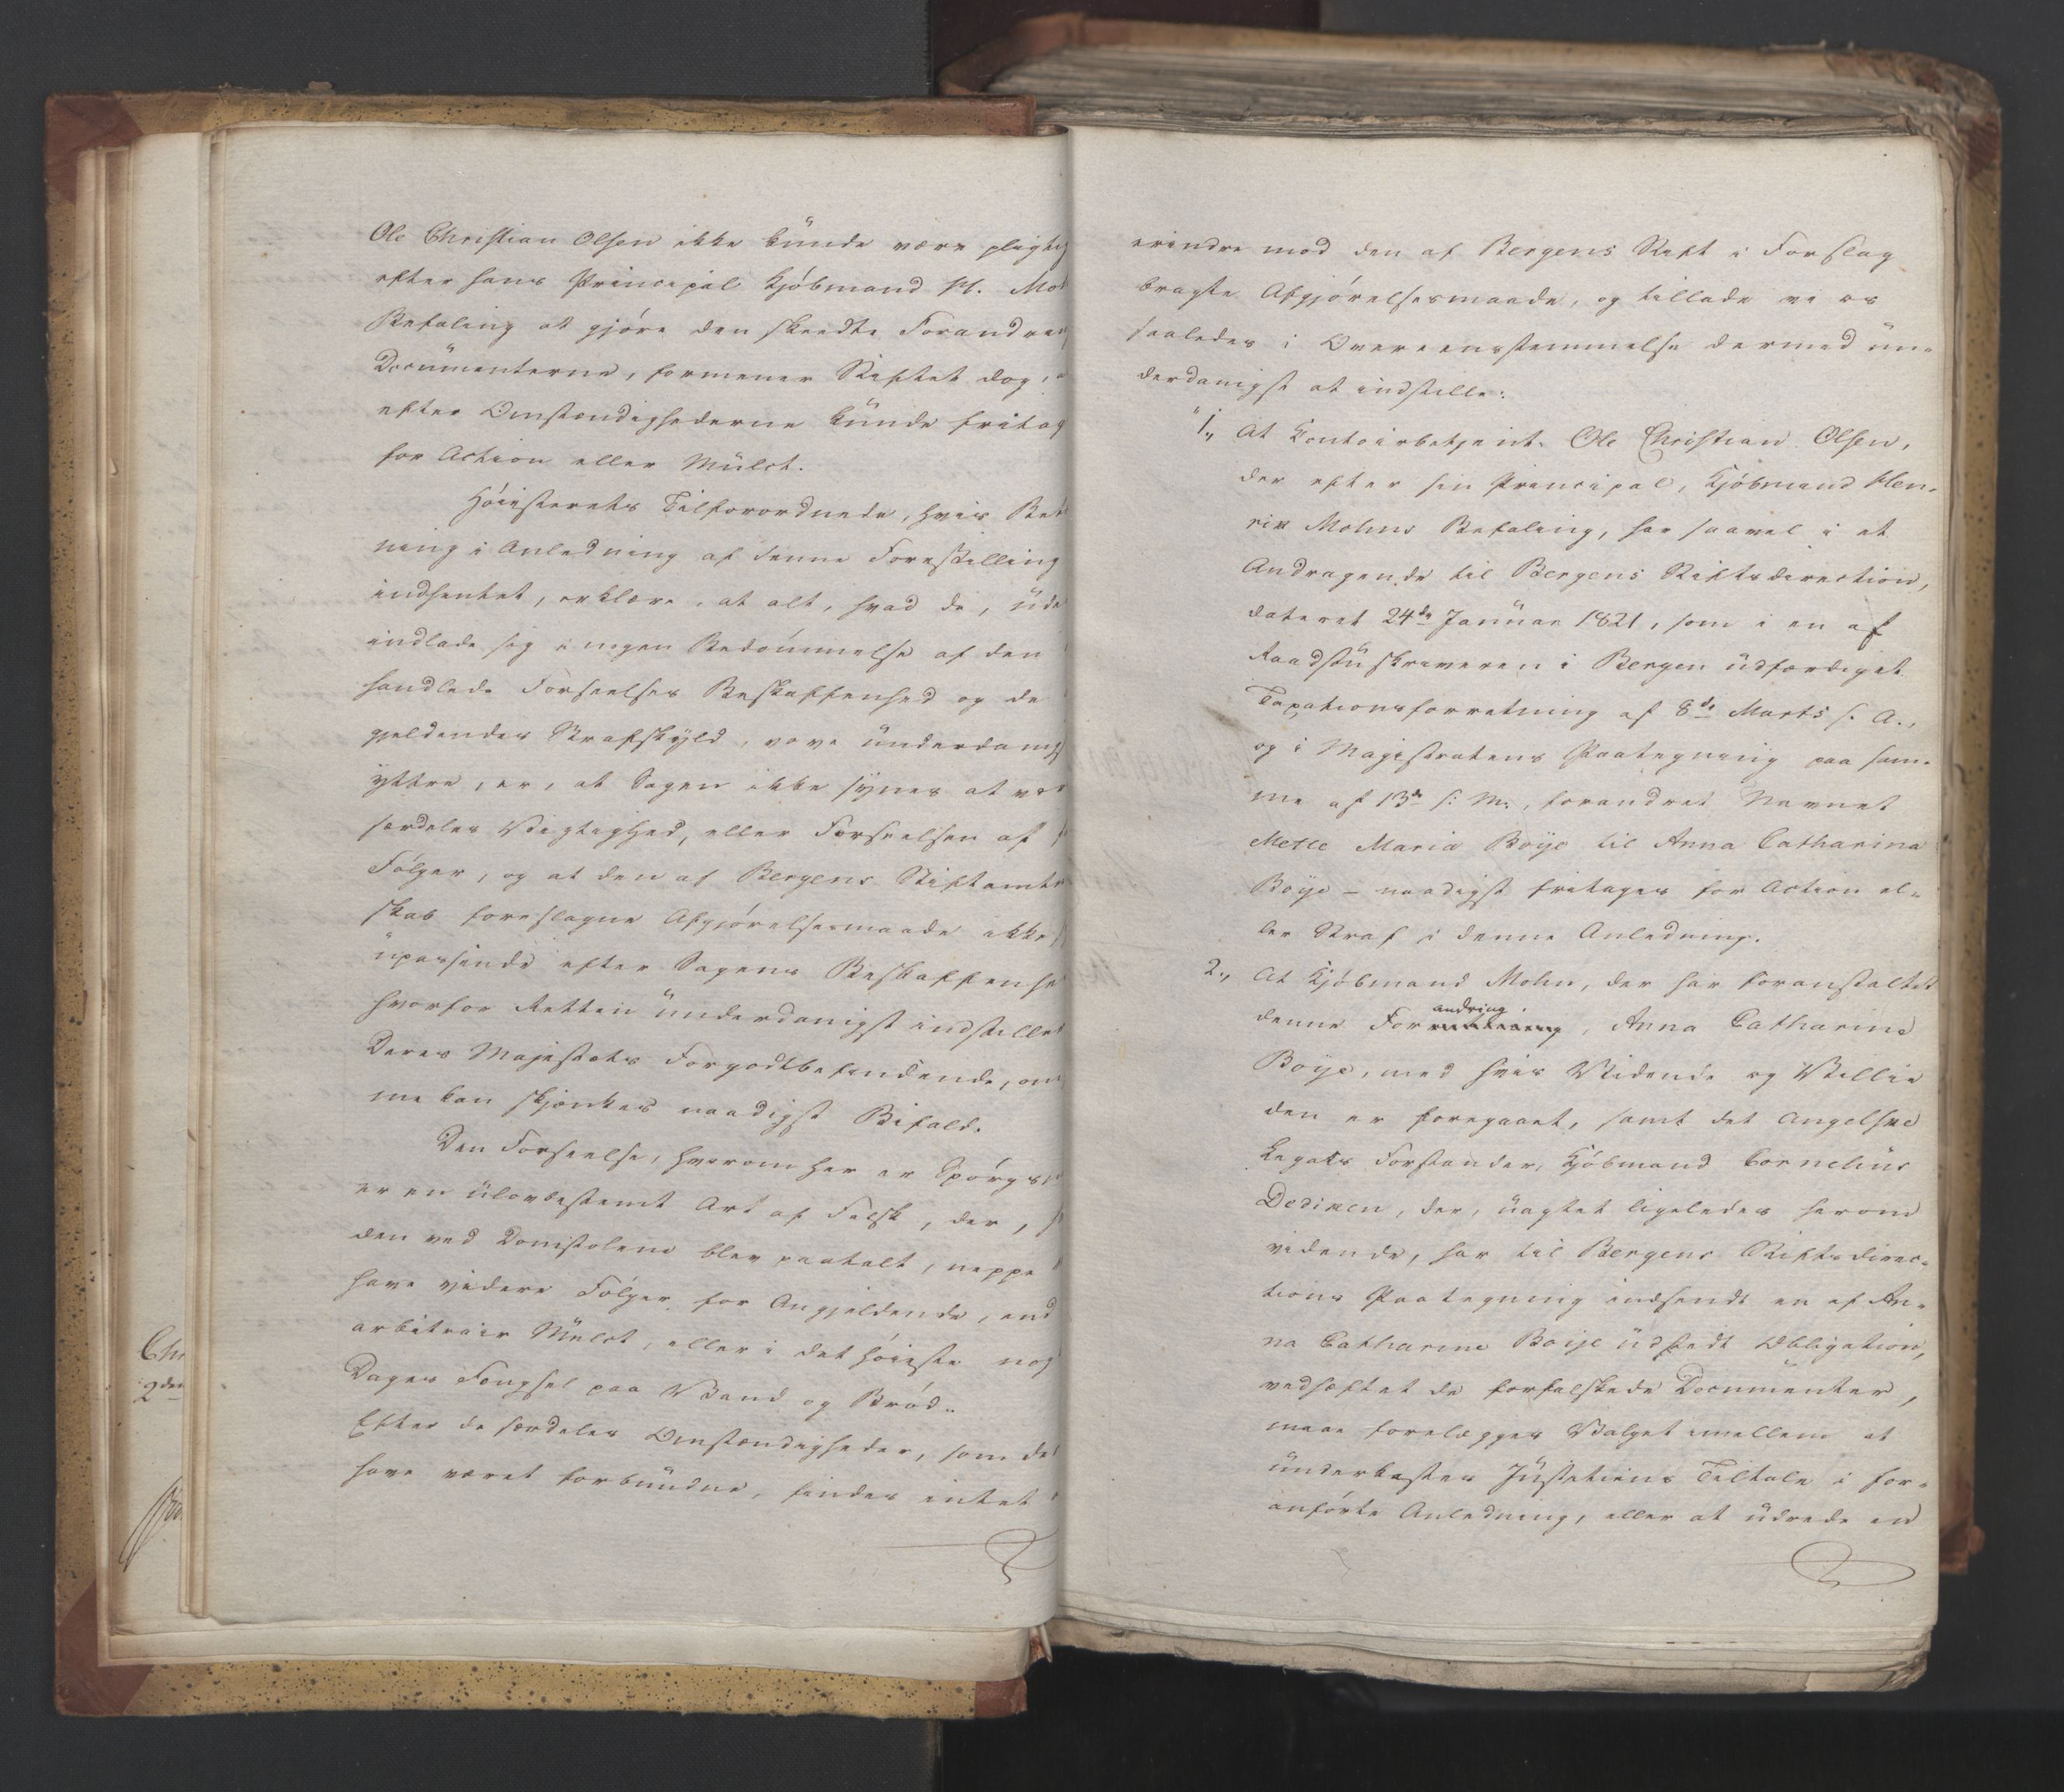 Ole Christian Olsen ikke kunde være pligtig
efter hans Principal Kjöbmand H. Moh
Befaling at gjöre den skeedte Forandrin
Documenterne, formener Stiftet dog,
efter Omstændighederne kunde fritag
for Action eller Mulct.
Höiesterets Tilforordnede, hvis Bet
ning i Anledning af denne Forestilling
indhentet, erklære, at alt, hvad de, ude
indlade sig i nogen Bedömmelse af den
handlede Forseelses Beskaffenhed og de
gjeldendes Strafskyld, vove underdanig
yttre, er, at Sagen ikke synes at vær
særdeles Vigtighed, eller Forseelsen af
Fölger, og at den af Bergens Stiftamt
skab foreslagne Afgjörelsesmaade ikke
upassende efter Sagens Beskaffenhe
hvorfor Retten underdanigst indstiller
Deres Majestets Forgodtbefindende, om
me kan skjænkes naadigst Bifald.
Den Forseelse, hvorom her er Spörgs
er en ulovbestemt Art af Falsk, der,
den ved Domstolene blev paatalt, neppe
have videre Fölger for Angjeldende, end
arbitrair Mulct, eller i det höieste nog
Dages Fængsel paa Vand og Bröd.
Efter de særdeles Omstændigheder, som de
have været forbundne, findes intet
Chr
2den
erindre mod den af Bergens Stift i Forslag
bragte Afgjörelsesmaade, og tillade vi os
saaledes i Overeensstemmelse dermed un-
derdanigst at indstille:
"1., At Contoirbetjent Ole Christian Olsen,
der efter sin Principal, Kjöbmand Hen-
rik Mohns Befaling, har saavel i et
Andragende til Bergens Stiftsdirection,
dateret 24de Januar 1821, som i en af
Raadstuskriveren i Bergen udfærdiget
Taxationsforretning af 8de Marts s. A.,
og i Magistratens Paategning paa sam-
me af 13de s. M., forandret Navnet
Mette Maria Böye til Anna Catharina
Böye - naadigst fritages for Action el-
ler Straf i denne Anledning.
2., At Kjöbmand Mohn, der har foranstaltet
andring
denne For, Anna Catharine
Böye, med hvis Vidende og Villie
den er foregaaet, samt det Angelske
Legats Forstander, Kjöbmand Cornelius
Dediken, der, uagtet ligeledes herom
vidende, har til Bergens Stiftsdirec-
tions Paategning indsendt en af An-
na Catharine Böije udstedt Obligation,
vedhæftet de forfalskede Documenter,
maae forelægges Valget imellem at
underkastes Justitiens Tiltale i for-
anförte Anledning, eller at udrede en